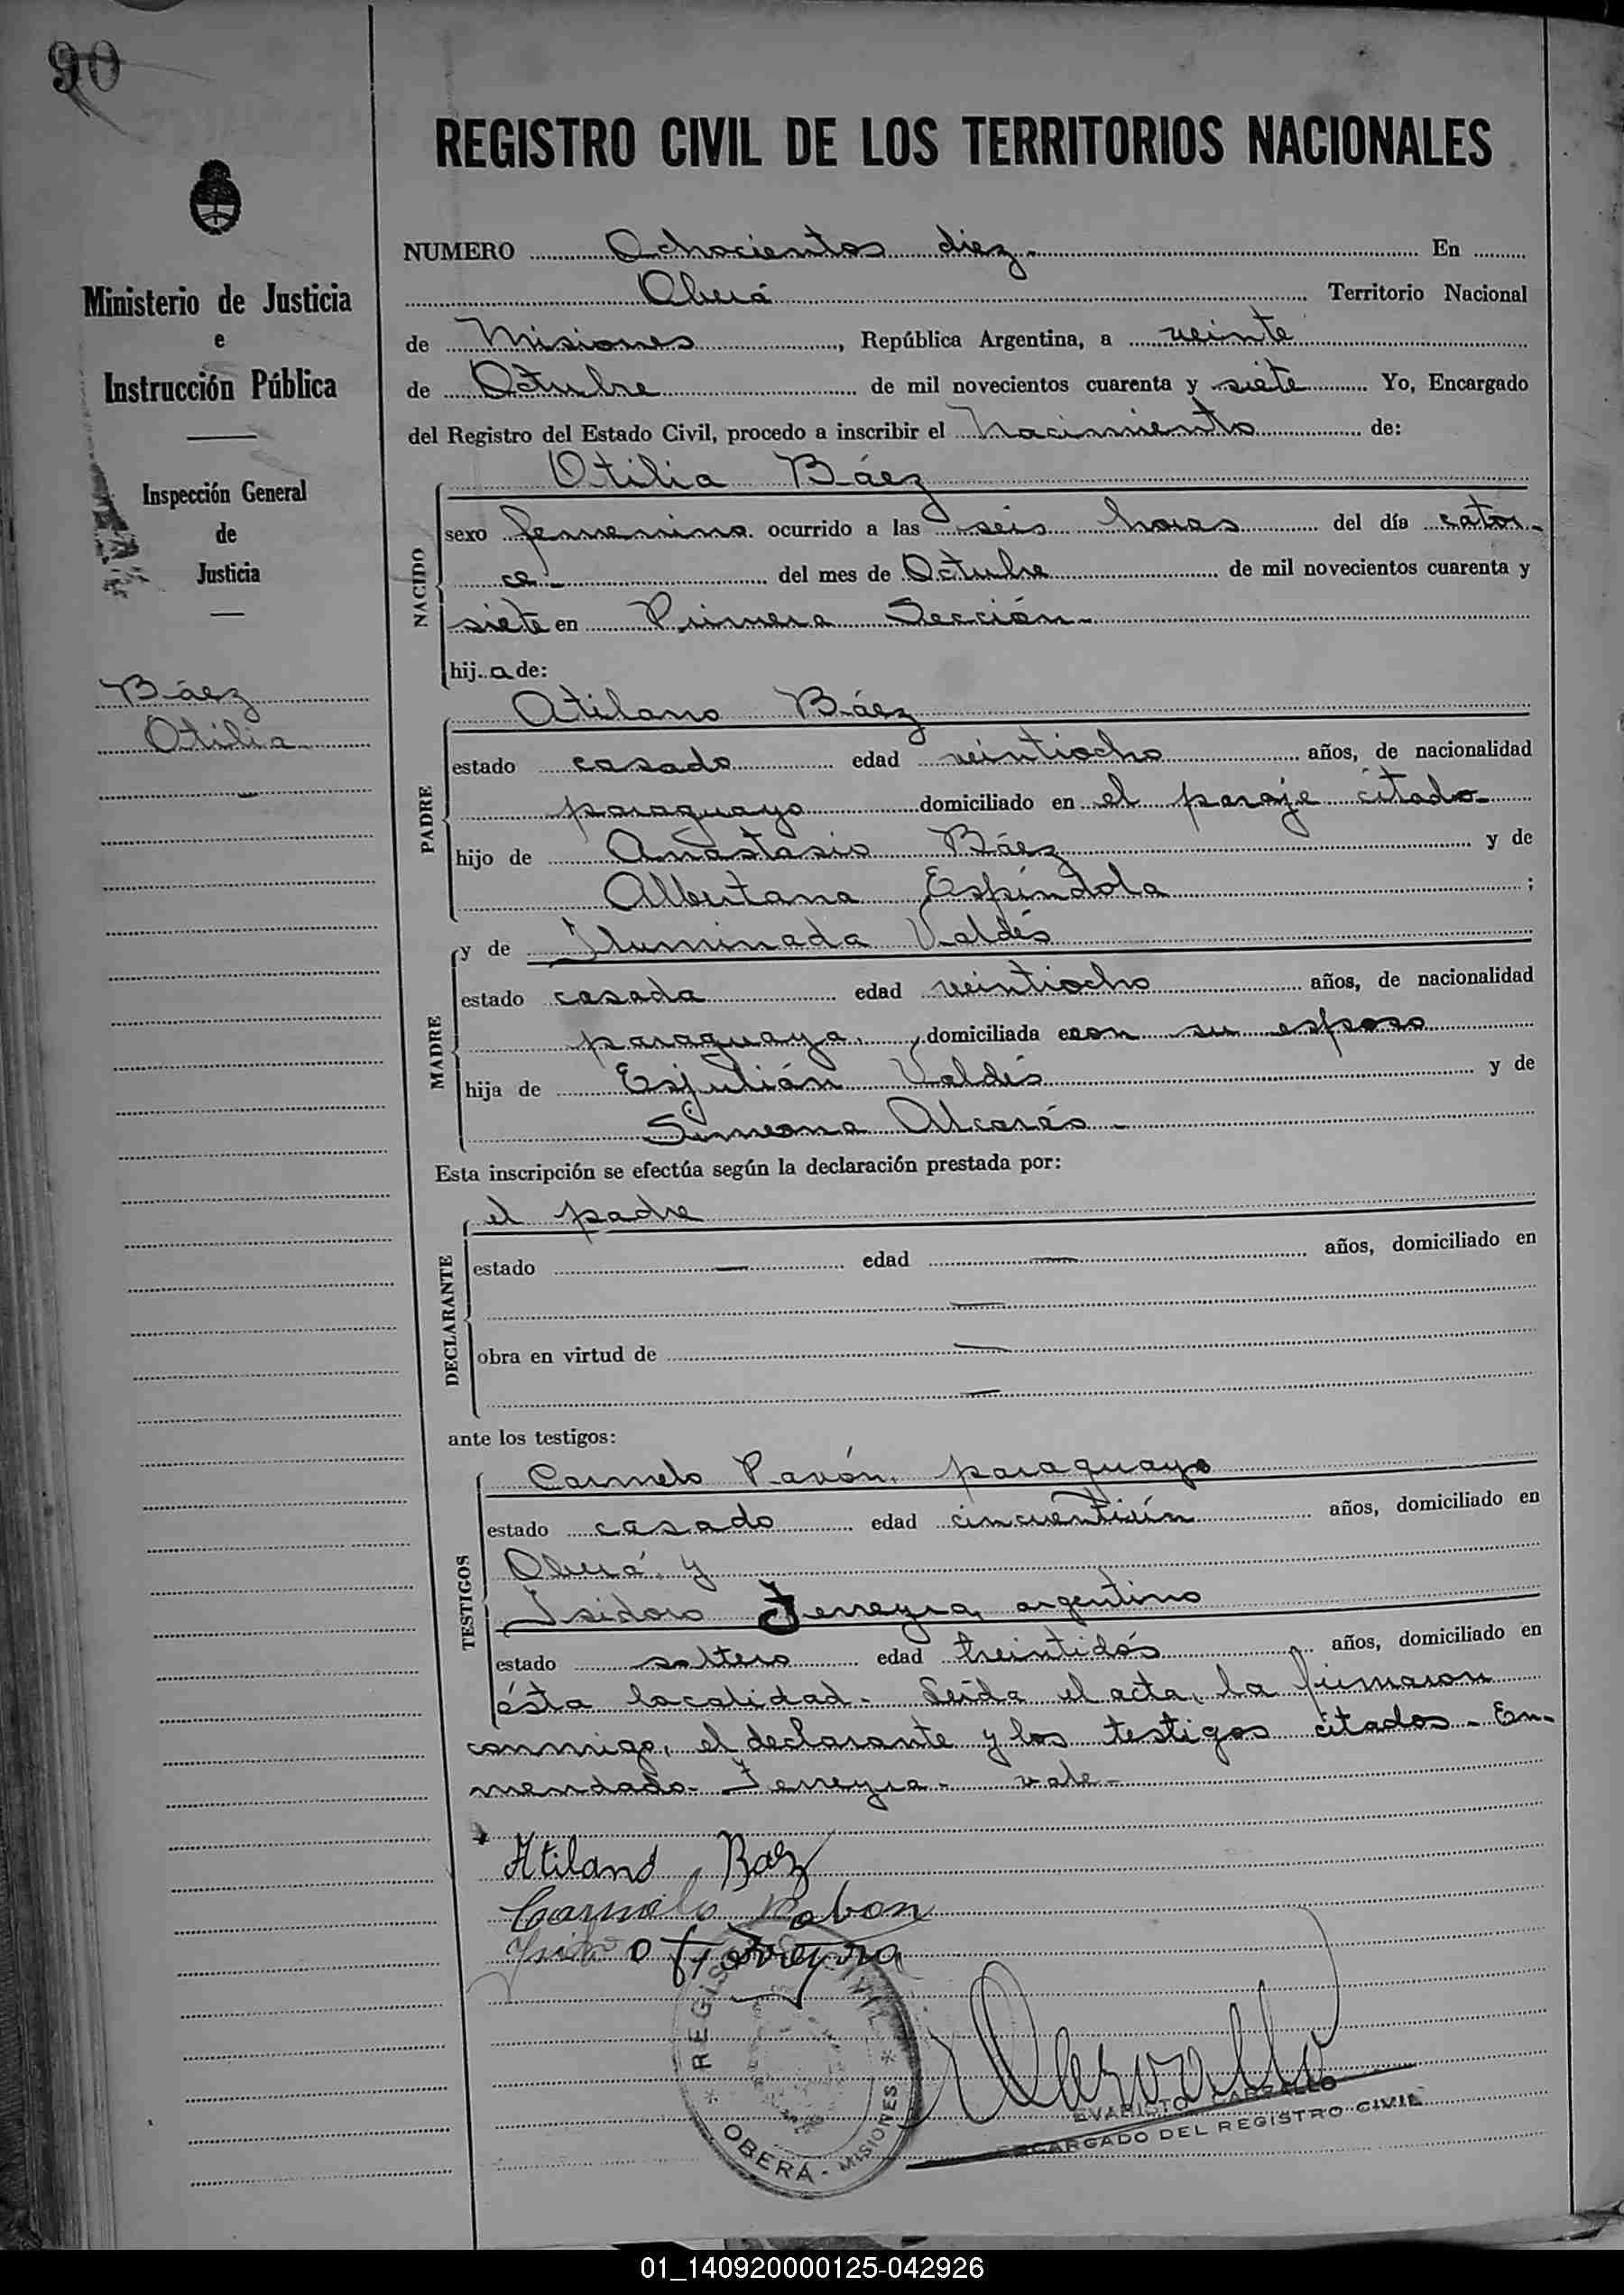 90
REGISTRO CIVIL DE LOS TERRITORIOS NACIONALES
Ministerio de Justicia
e
Instrucción Pública
Inspección General
de
Justicia
Báez
Otilia
NUMERO Ochocientos diez.- En
Oberá Territorio Nacional
de Misiones, República Argentina, a veinte
de Octubre de mil novecientos cuarenta y siete Yo, Encargado
del Registro del Estado Civil, procedo a inscribir el nacimiento de:
Otilia Báez
NACIDO
sexo femenino ocurrido a las seis horas del día cator-
ce.- del mes de Octubre de mil novecientos cuarenta y
siete en Primera Sección.-
hija de:
Atilano Báez
PADRE
estado casado edad veintiocho años, de nacionalidad
paraguayo domiciliado en el paraje citado
hijo de Anastasio Báez y de
Albertana Espíndola ;
y de Iluminada Valdés
MADRE
estado casada edad veintiocho años, de nacionalidad
paraguaya, domiciliada con su esposo
hija de Esjulián Valdés y de
Simeona Alcarás.-
Esta inscripción se efectúa según la declaración prestada por:
el padre
DECLARANTE
estado — edad — años, domiciliado en
—
obra en virtud de —
—
ante los testigos:
Carmelo Pavón, paraguayo
TESTIGOS
estado casado edad cincuentiún años, domiciliado en
Oberá, y
Isidoro Ferreyra, argentino
estado soltero edad treintidós años, domiciliado en
ésta localidad.- Leída el acta, la firmaron
conmigo, el declarante y los testigos citados.- En-
mendado- Ferreyra- vale-
Atilano Baez
Carmelo Pabon
Isidoro Ferreyra
REGISTRO CIVIL
* OBERÁ - MISIONES *
EVARISTO CARVALLO
ENCARGADO DEL REGISTRO CIVIL
01_140920000125-042926